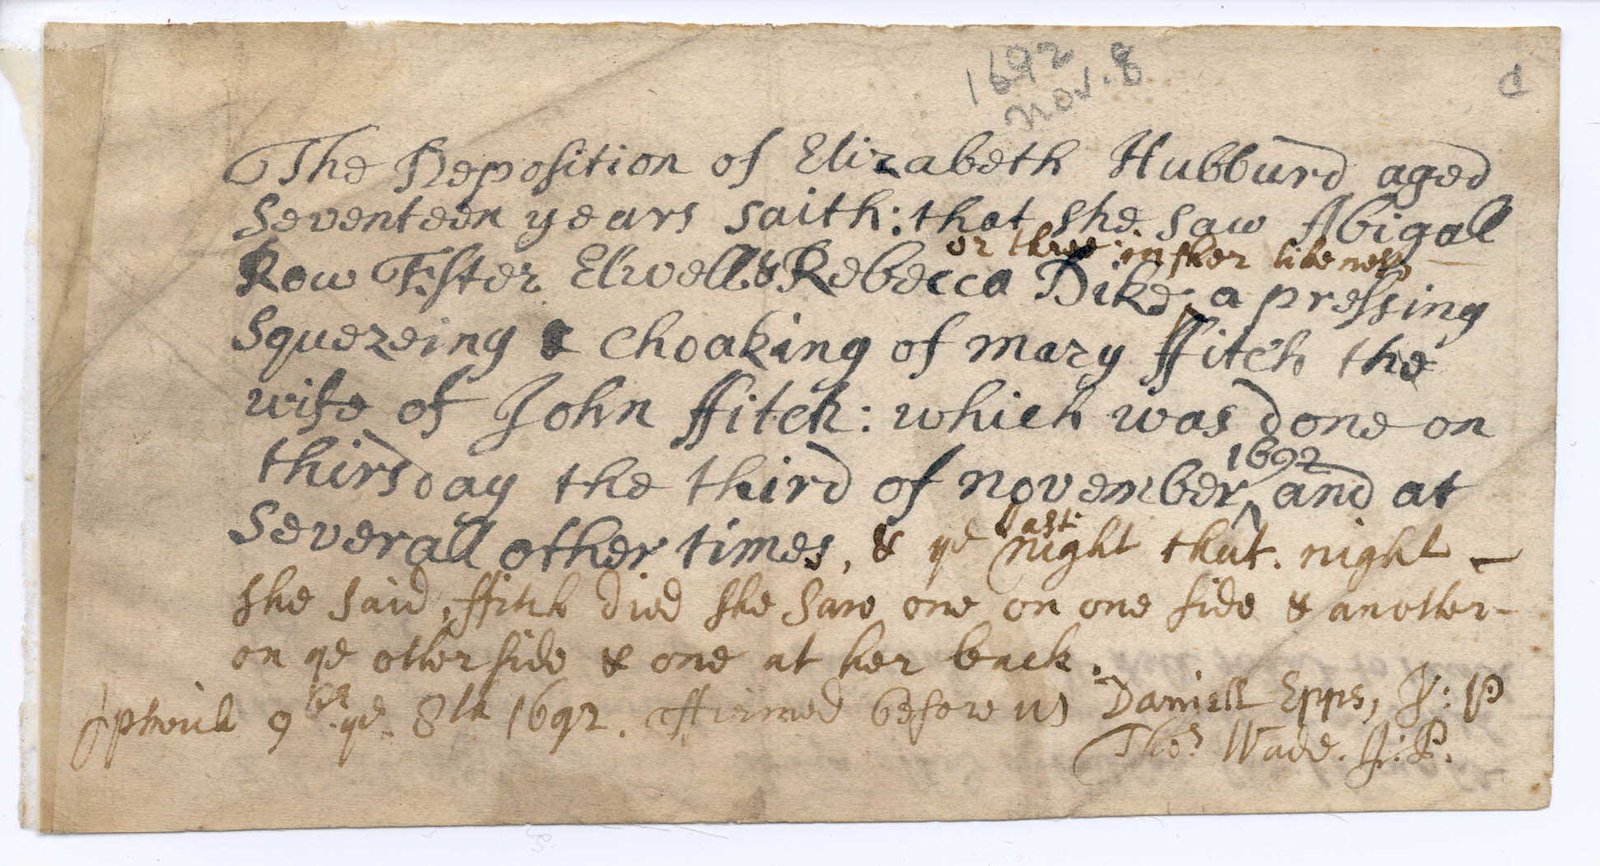 1692
Nov. 8
d
The Deposition of Elizabeth Hubburd aged
Seventeen years saith: that she saw Abigall
or three in ther likeness
Row Ester Elwell & Rebecca Dike a pressing
Squezeing & choaking of mary ffitch the
wife of John ffitch: which was done on
thirsday the third of november 1692 and at
Severall other times, & ye last night that. night
she said, ffitch died she saw one on one side & another
on ye other side & one at her back.
Ipswich 9br ye 8th 1692. Affirmed before us Daniell Epps, J: P
Thos Wade. J:P.